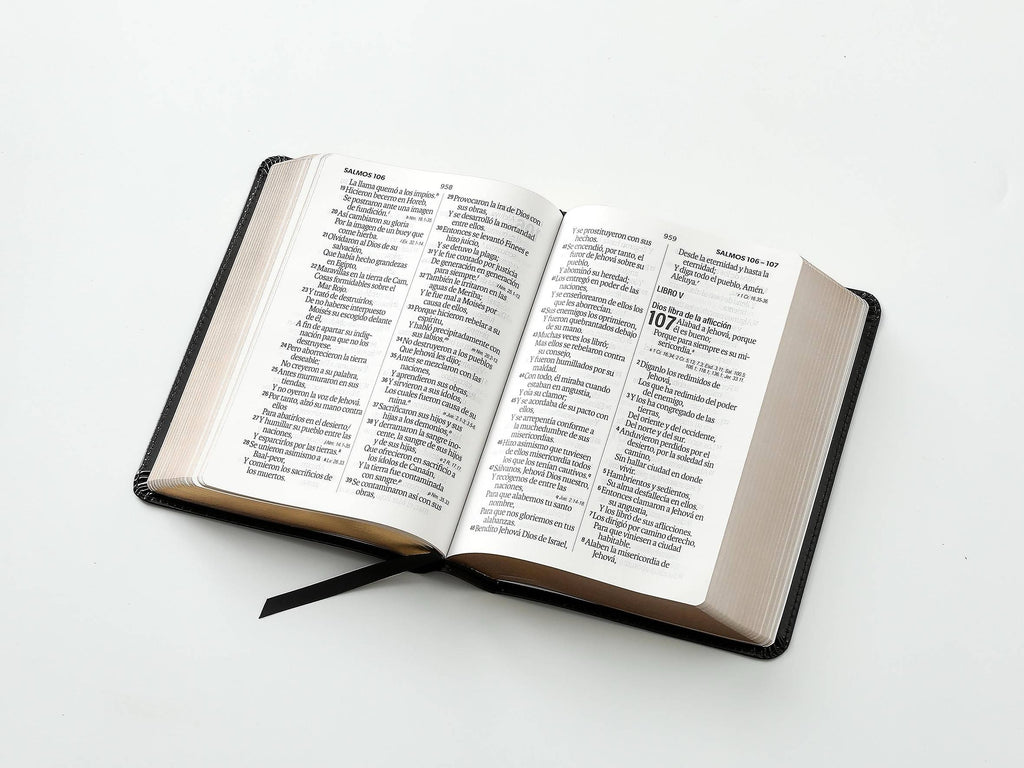 SALMOS 106
958
La llama quemó a los impíos.
19 Hicieron becerro en Horeb,
Se postraron ante una imagen
de fundición.
20 Así cambiaron su gloria
Por la imagen de un buey que
come hierba.
21 Olvidaron al Dios de su
salvación,
Que había hecho grandezas
en Egipto,
22 Maravillas en la tierra de Cam,
Cosas formidables sobre el
Mar Rojo.
23 Y trató de destruirlos,
De no haberse interpuesto
Moisés su escogido delante
de él,
A fin de apartar su indig-
nación para que no los
destruyese.
24 Pero aborrecieron la tierra
deseable;
No creyeron a su palabra,
25 Antes murmuraron en sus
tiendas,
Y no oyeron la voz de Jehová.
26 Por tanto, alzó su mano contra
ellos
Para abatirlos en el desierto,
27 Y humillar su pueblo entre las
naciones,
Y esparcirlos por las tierras.
28 Se unieron asimismo a
Baal-peor,
Y comieron los sacrificios de
los muertos.
29 Provocaron la ira de Dios con
sus obras,
Y se desarrolló la mortandad
entre ellos.
30 Entonces se levantó Finees e
hizo juicio,
Y se detuvo la plaga;
31 Y le fue contado por justicia
De generación en generación
para siempre.
32 También le irritaron en las
aguas de Meriba;
Y le fue mal a Moisés por
causa de ellos,
33 Porque hicieron rebelar a su
espíritu,
Y habló precipitadamente con
sus labios.
34 No destruyeron a los pueblos
Que Jehová les dijo;
35 Antes se mezclaron con las
naciones,
Y aprendieron sus obras,
36 Y sirvieron a sus ídolos,
Los cuales fueron causa de su
ruina.
37 Sacrificaron sus hijos y sus
hijas a los demonios,
38 Y derramaron la sangre ino-
cente, la sangre de sus hijos
y de sus hijas,
Que ofrecieron en sacrificio a
los ídolos de Canaán,
Y la tierra fue contaminada
con sangre.
39 Se contaminaron así con sus
obras,
959
SALMOS 106 – 107
Y se prostituyeron con sus
hechos.
40 Se encendió, por tanto, el
furor de Jehová sobre su
pueblo,
Y abominó su heredad;
41 Los entregó en poder de las
naciones,
Y se enseñorearon de ellos los
que les aborrecían.
42 Sus enemigos los oprimieron,
Y fueron quebrantados debajo
de su mano.
43 Muchas veces los libró;
Mas ellos se rebelaron contra
su consejo,
Y fueron humillados por su
maldad.
44 Con todo, él miraba cuando
estaban en angustia,
Y oía su clamor;
45 Y se acordaba de su pacto con
ellos,
Y se arrepentía conforme a
la muchedumbre de sus
misericordias.
46 Hizo asimismo que tuviesen
de ellos misericordia todos
los que los tenían cautivos.
47 Sálvanos, Jehová Dios nuestro,
Y recógenos de entre las
naciones,
Para que alabemos tu santo
nombre,
Para que nos gloriemos en tus
alabanzas.
48 Bendito Jehová Dios de Israel,
Desde la eternidad y hasta la
eternidad;
Y diga todo el pueblo, Amén.
Aleluya.
LIBRO V
Dios libra de la aflicción
107 Alabad a Jehová, porque
él es bueno;
Porque para siempre es su mi-
sericordia.
2 Díganlo los redimidos de
Jehová,
Los que ha redimido del poder
del enemigo,
3 Y los ha congregado de las
tierras,
Del oriente y del occidente,
Del norte y del sur.
4 Anduvieron perdidos por el
desierto, por la soledad sin
camino,
Sin hallar ciudad en donde
vivir.
5 Hambrientos y sedientos,
Su alma desfallecía en ellos.
6 Entonces clamaron a Jehová en
su angustia,
Y los libró de sus aflicciones.
7 Los dirigió por camino derecho,
Para que viniesen a ciudad
habitable.
8 Alaben la misericordia de
Jehová,